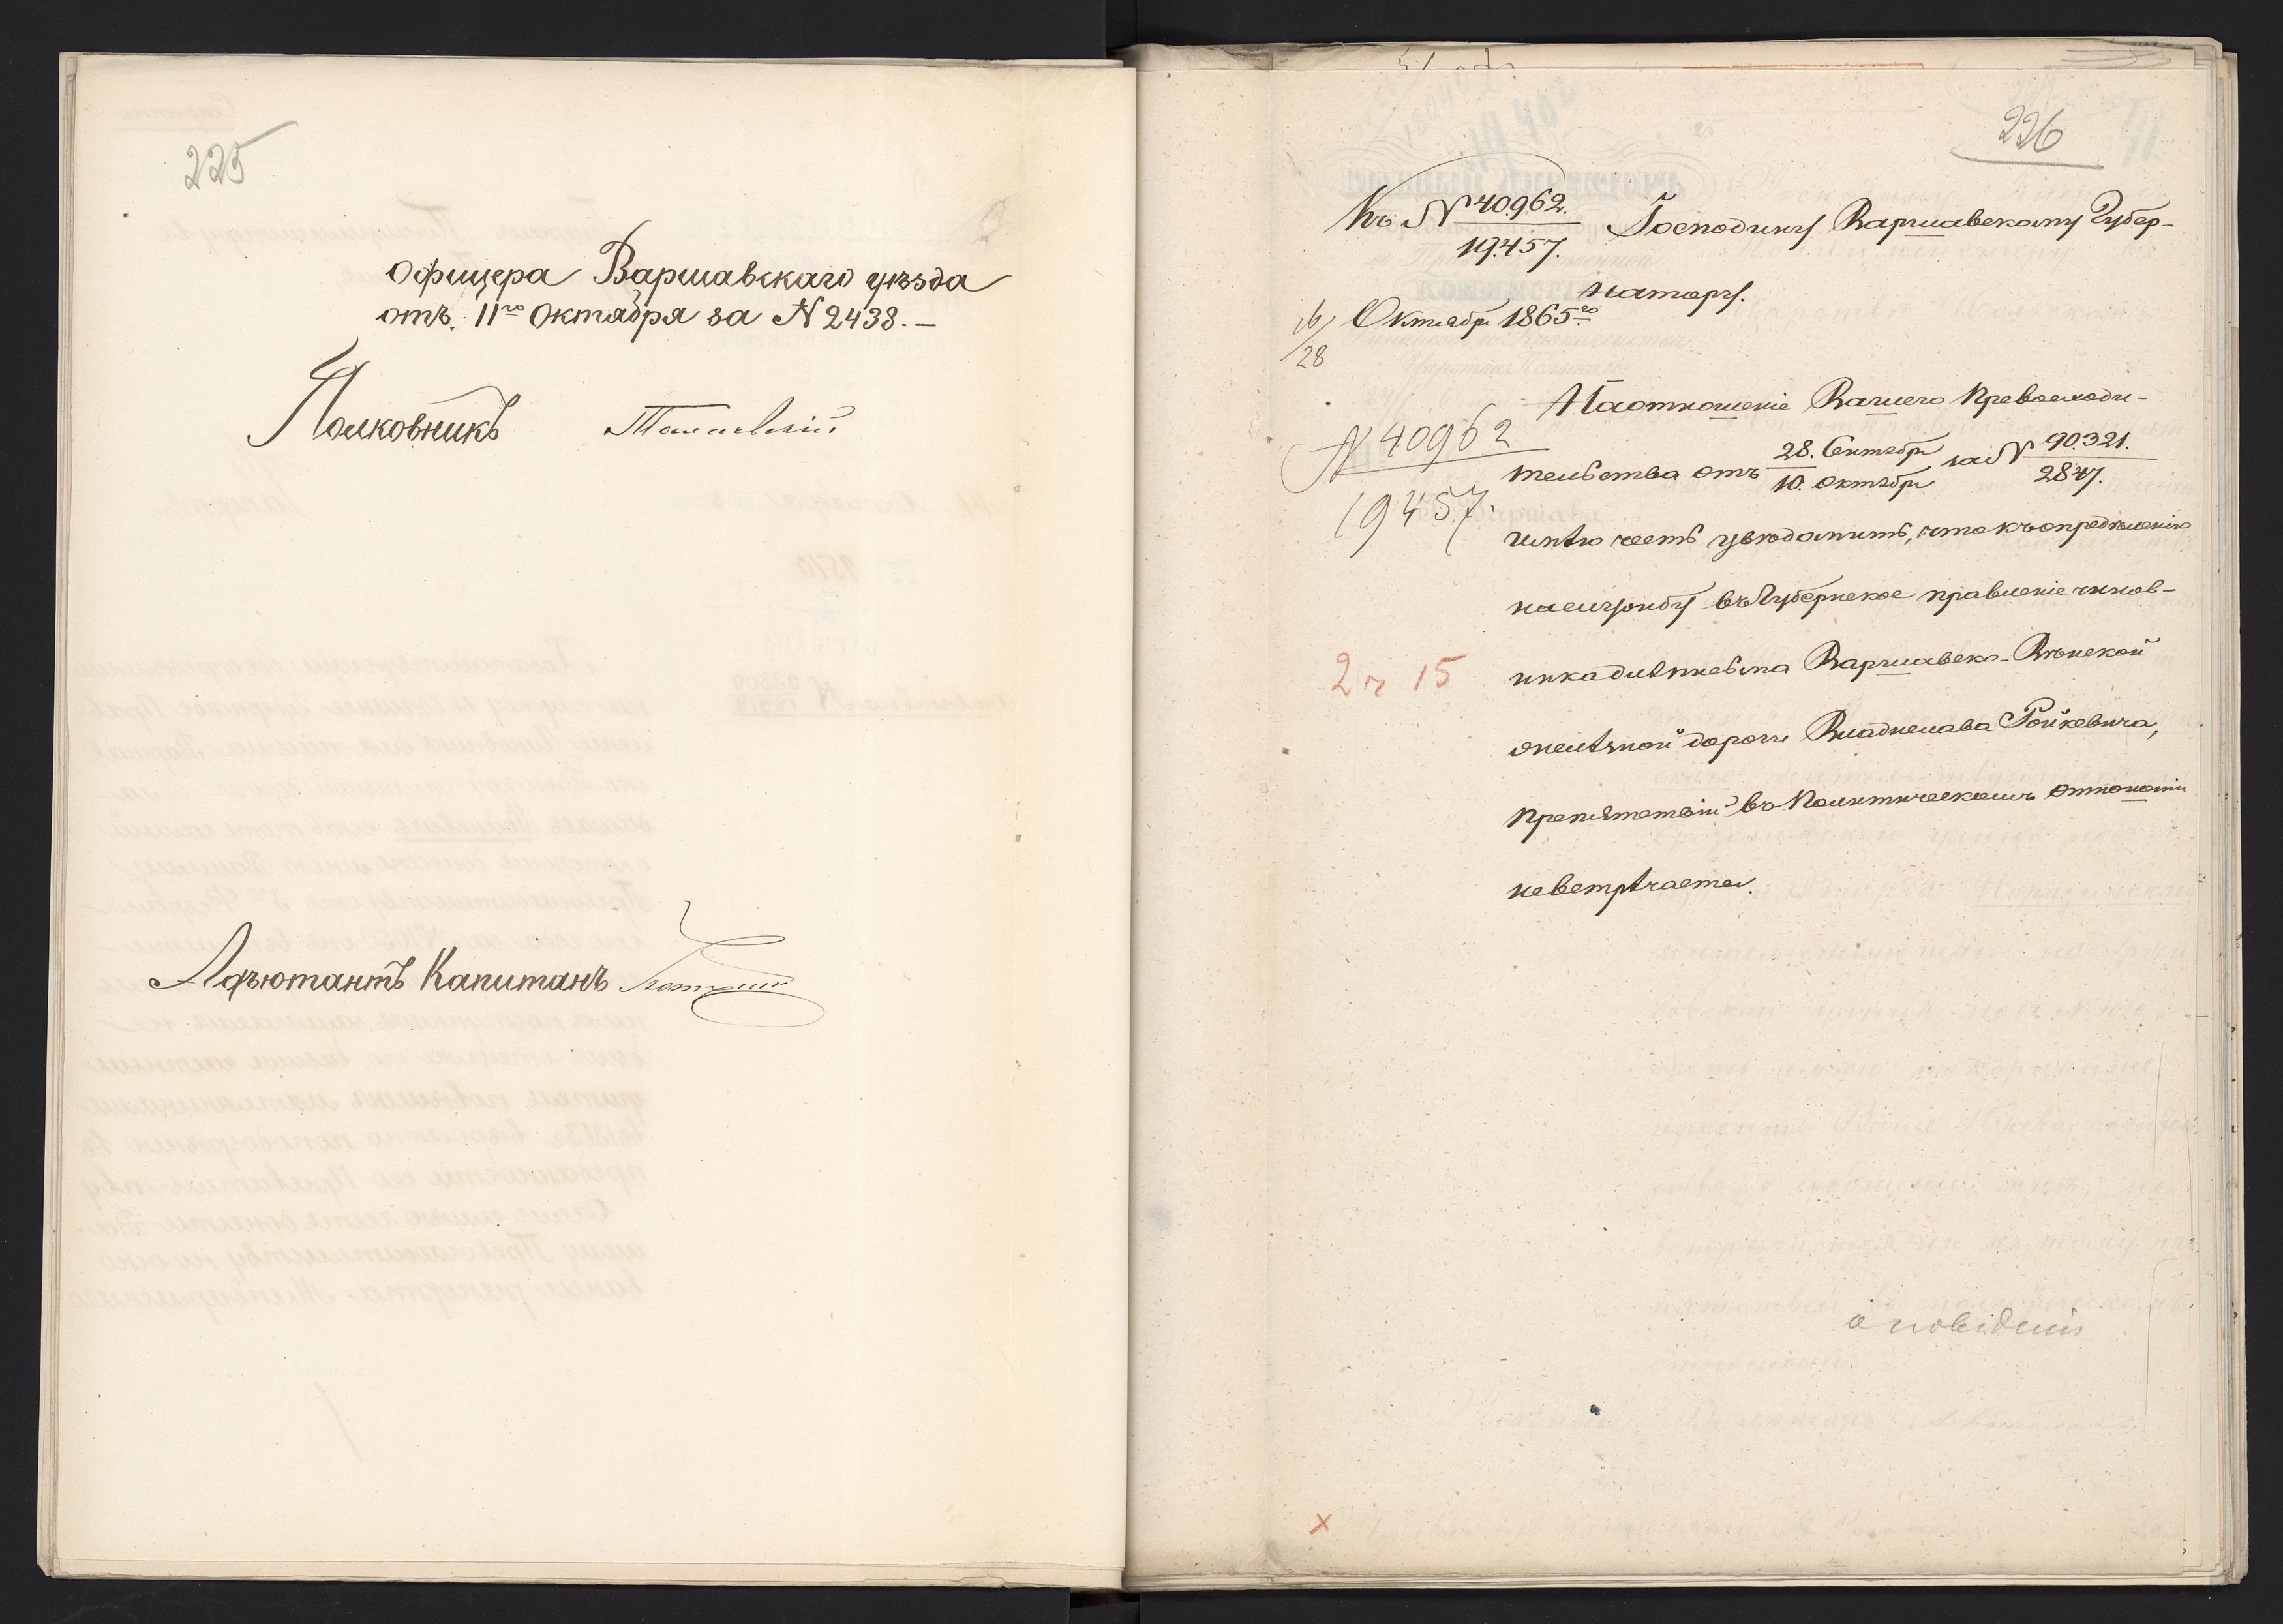 225
офицера Варшавскаго уѣзда
отъ 11го Октября за N 2438.—
Полковникъ
Адъютантъ Капитанъ
226
Къ N 40962.
19457.
Господину Варшавскому Губер-
натору.
16/28 Октября 1865го
На отношеніе Вашего Превосходи-
N 40962
19457.
тельства отъ 28. Сентября / 10. Октября за N 90321. / 2847.
имѣю честь увѣдомить, что къ опредѣленію
на службу въ Губернское правленіе чинов-
2 г 15
ника дистанства Варшавско-Вѣнской
желѣзной дороги Владислава Ройкевича,
препятствій въ Политическомъ отношеніи
не встрѣчается.